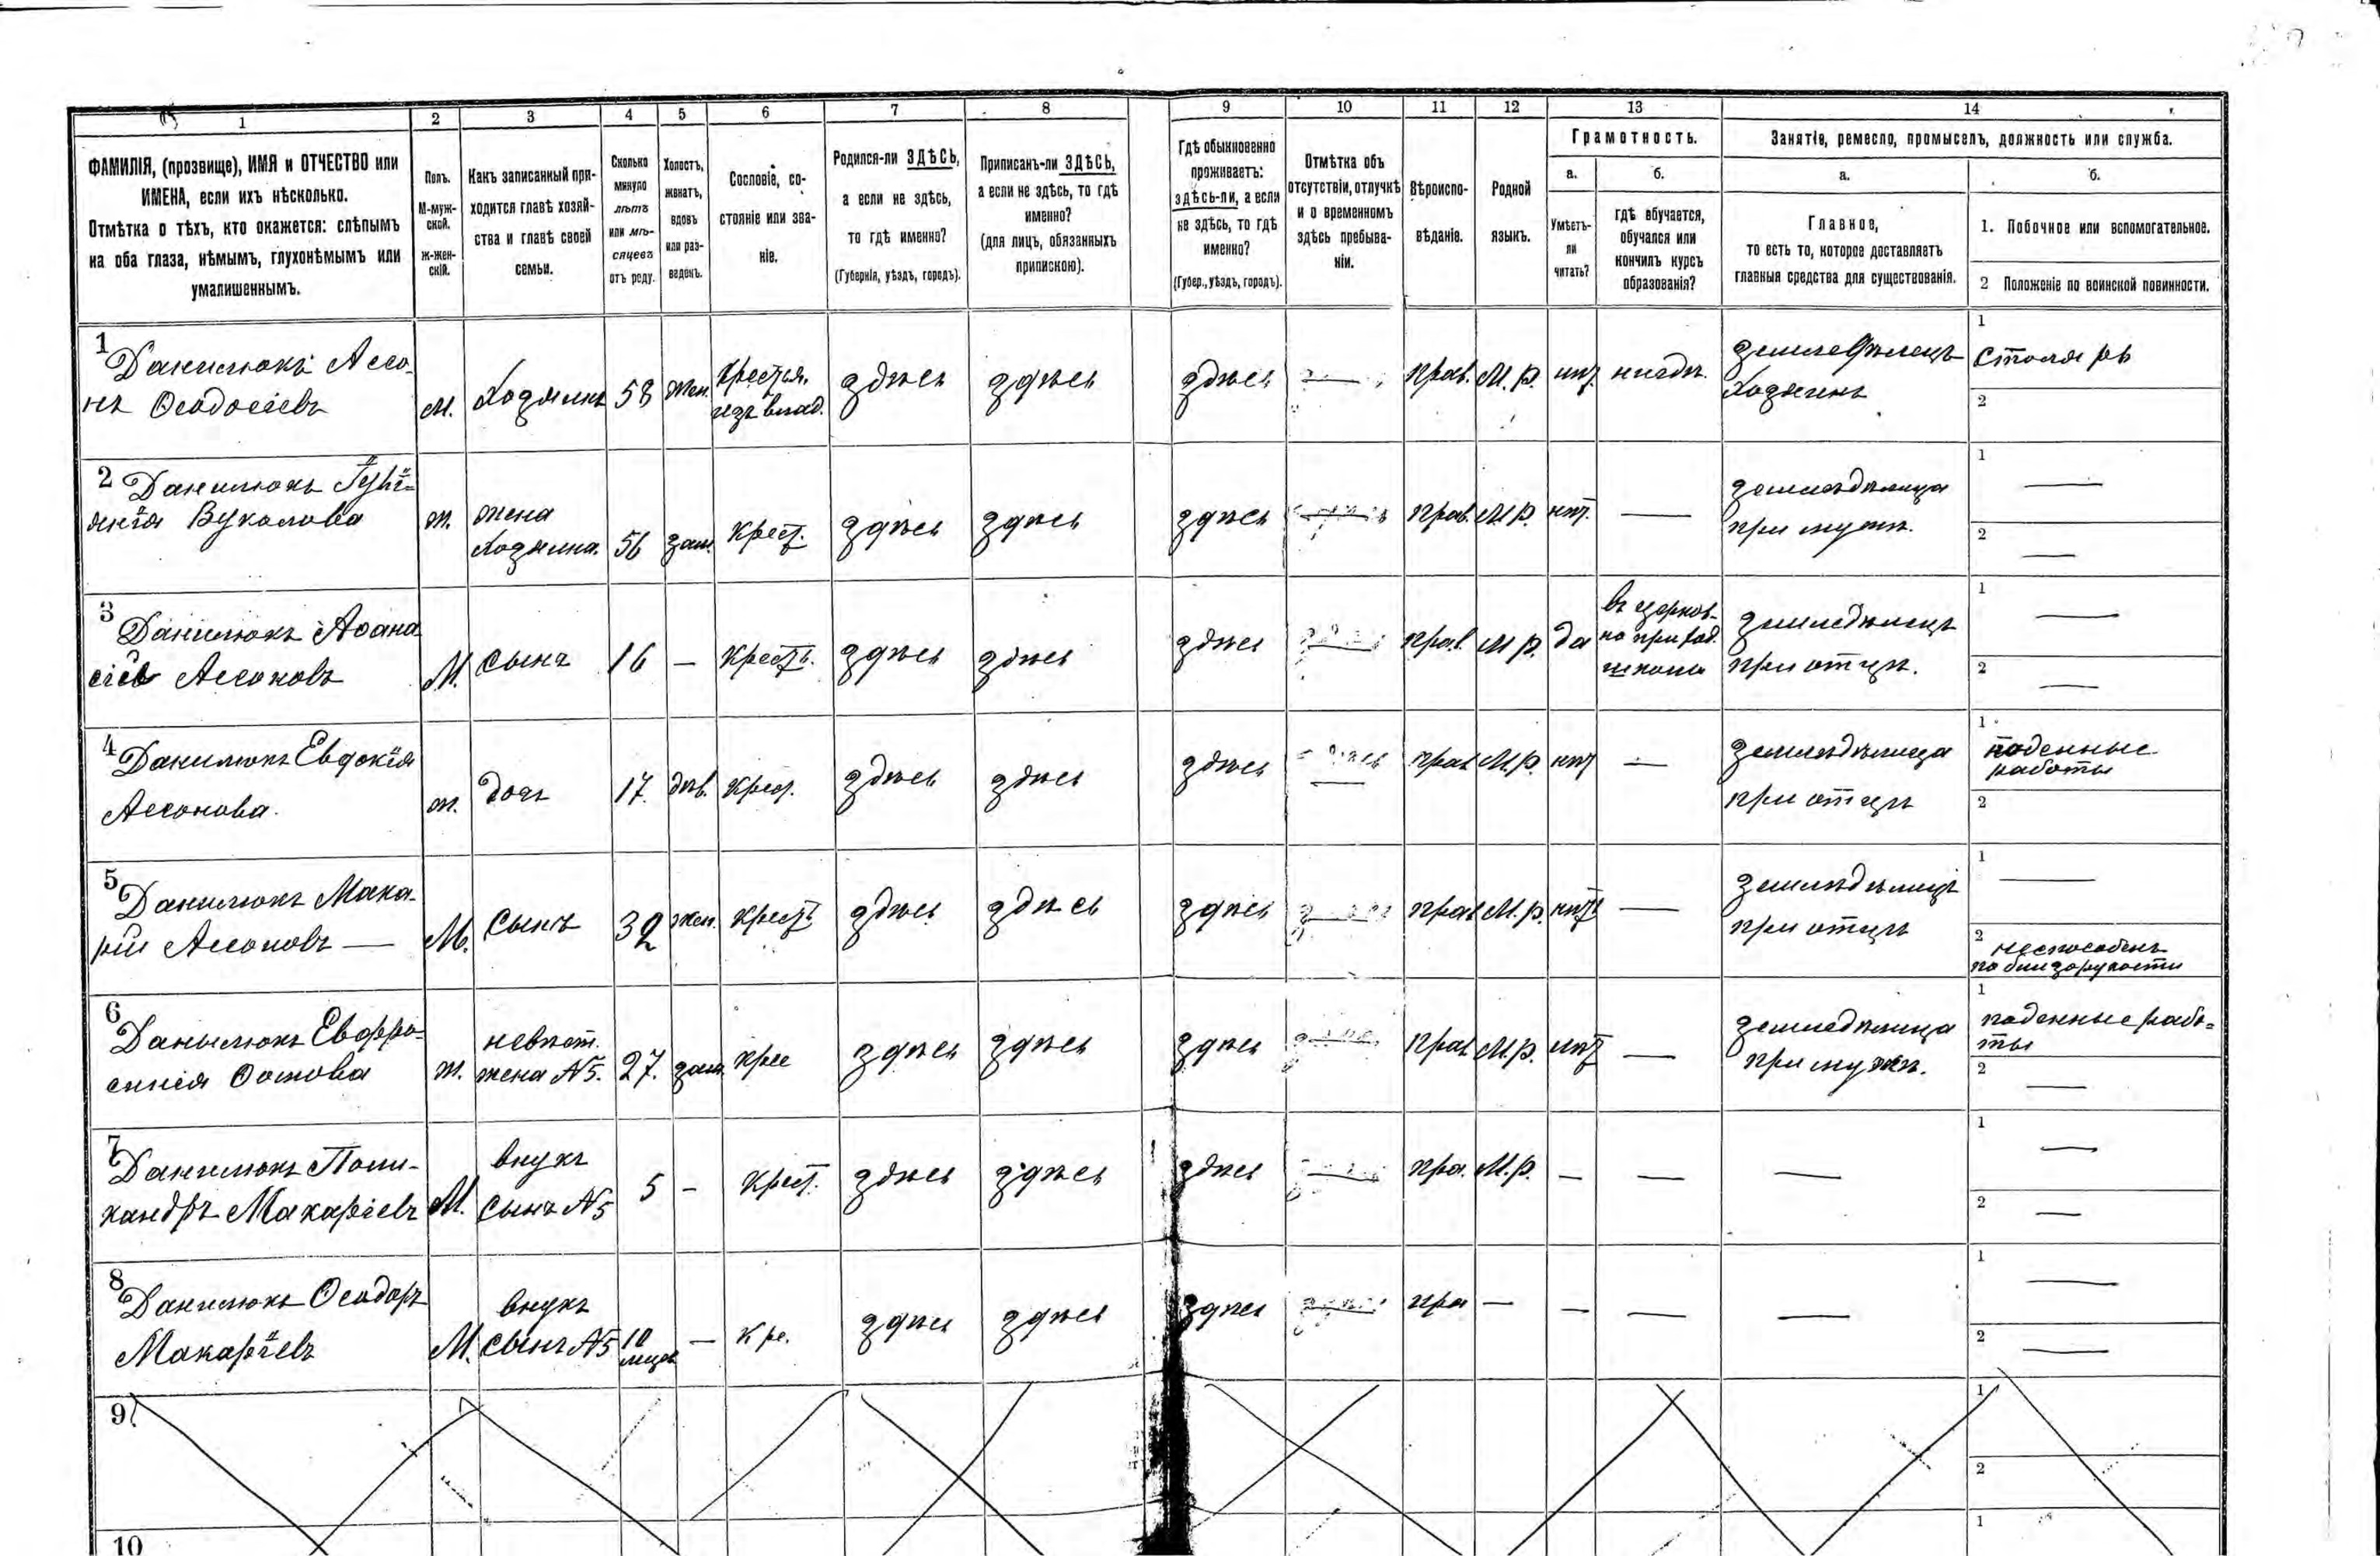 1 2 3 4 5 6 7 8 9 10 11 12 13 14
ФАМИЛІЯ, (прозвище), ИМЯ и ОТЧЕСТВО или
ИМЕНА, если ихъ нѣсколько.
Отмѣтка о тѣхъ, кто окажется: слѣпымъ
на оба глаза, нѣмымъ, глухонѣмымъ или
умалишеннымъ.
Полъ.
М-муж-
ской.
Ж-жен-
скій.
Какъ записанный при-
ходится главѣ хозяй-
ства и главѣ своей
семьи.
Сколько
минуло
лѣтъ
или мѣ-
сяцевъ
отъ роду.
Холостъ,
женатъ,
вдовъ
или раз-
веденъ.
Сословіе, со-
стояніе или зва-
ніе.
Родился-ли ЗДѢСЬ,
а если не здѣсь,
то гдѣ именно?
(Губернія, уѣздъ, городъ).
Приписанъ-ли ЗДѢСЬ,
а если не здѣсь, то гдѣ
именно?
(для лицъ, обязанныхъ
припискою).
Гдѣ обыкновенно
проживаетъ:
здѣсь-ли, а если
не здѣсь, то гдѣ
именно?
(Губер., уѣздъ, городъ).
Отмѣтка объ
отсутствіи, отлучкѣ
и о временномъ
здѣсь пребыва-
ніи.
Вѣроиспо-
вѣданіе.
Родной
языкъ.
Грамотность.
а.
Умѣетъ-
ли
читать?
б.
гдѣ обучается,
обучался или
кончилъ курсъ
образованія?
Занятіе, ремесло, промыселъ, должность или служба.
а.
Главное,
то есть то, которое доставляетъ
главныя средства для существованія.
б.
1. Побочное или вспомогательное.
2 Положеніе по воинской повинности.
1 Данилюкъ Ассо-
нъ Ѳеодосіевъ
М. Хозяинъ 58 жен.
крестья.
изъ влад.
здѣсь здѣсь здѣсь — прав. М.р. нѣт. нигдѣ.
земледѣлецъ
Хозяинъ
1 столяръ
2
2 Данилюкъ
Вуколова
ж. жена
хозяина. 56 зам. Крест. здѣсь здѣсь здѣсь прав. М.р. нѣт. —
земледѣлица
при мужѣ.
1 —
2 —
3 Данилюкъ Аѳана
сій Ассоновъ
М. сынъ 16 — Крестъ. здѣсь здѣсь здѣсь прав. М р. да
въ церков-
но приход.
школѣ
земледѣлецъ
при отцѣ.
1 —
2 —
4 Данилюкъ Евдокія
Ассонова.
ж. дочь 17. дѣв. Крест. здѣсь здѣсь здѣсь прав М.р. нѣт —
земледѣлица
при отцѣ
1 поденные
работы
2
5 Данилюкъ Мака-
рій Ассоновъ —
М. сынъ 32 жен. крестъ здѣсь здѣсь здѣсь прав М.р. нѣтъ —
земледѣлецъ
при отцѣ
1 —
2 неспособенъ
по близорукости
6 Данылюкъ Евфро-
синія
ж. невѣст.
жена №5. 27. зам. крес здѣсь здѣсь здѣсь прав М.р. нѣт —
земледѣлица
при мужѣ.
1 поденные рабо-
ты
2 —
7 Данилюкъ Поли-
кандръ Макаріевъ
М. внукъ
сынъ №5 5 — Крест. здѣсь здѣсь здѣсь пра. М.р. — — —
1 —
2 —
8 Данилюкъ Ѳеодоръ
Макаріевъ
М. внукъ
сынъ №5 10
мѣсяц. — Кре. здѣсь здѣсь здѣсь пра — — — —
1 —
2 —
9
1
2
10
1